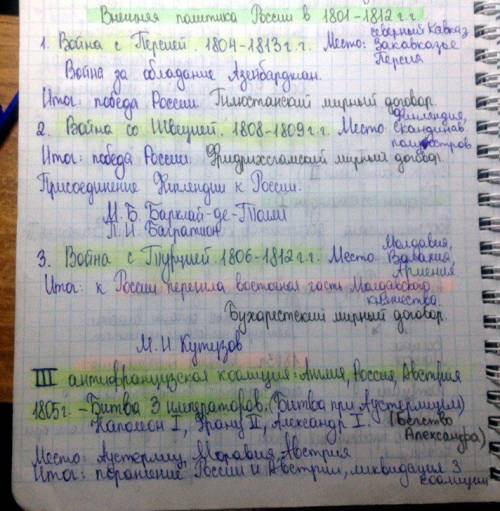 Внешняя политика России в 1801-1812 г.г.
1. Война с Персией. 1804-1813 г.г. Место: северный Кавказ
Закавказье
Персия
Война за обладание Азенбарджан.
Итог: победа России. Гюлюстанский мирный договор.
2. Война со Швецией. 1808-1809 г.г. Место Финляндия,
Скандинав.
полуостров
Итог: победа России. Фридрихсгамский мирный договор.
Присоединение Финляндии к России.
М.Б. Барклай-де-Толли
П.И. Багратион
3. Война с Турцией. 1806-1812 г.г. Место: Молдавия,
Валахия,
Армения
Итог: к России перешла восточная часть Молдавского
княжества.
Бухарестский мирный договор.
М.И Кутузов
III антифранцузская коалиция: Англия, Россия, Австрия
1805 г. - Битва 3 императоров. (Битва при Аустерлицем)
Наполеон I, Франц II, Александр I. (Бегство
Александра)
Место: Аустерлиц, Моравия, Австрия
Итог: поражение России и Австрии, ликвидация 3
коалиции